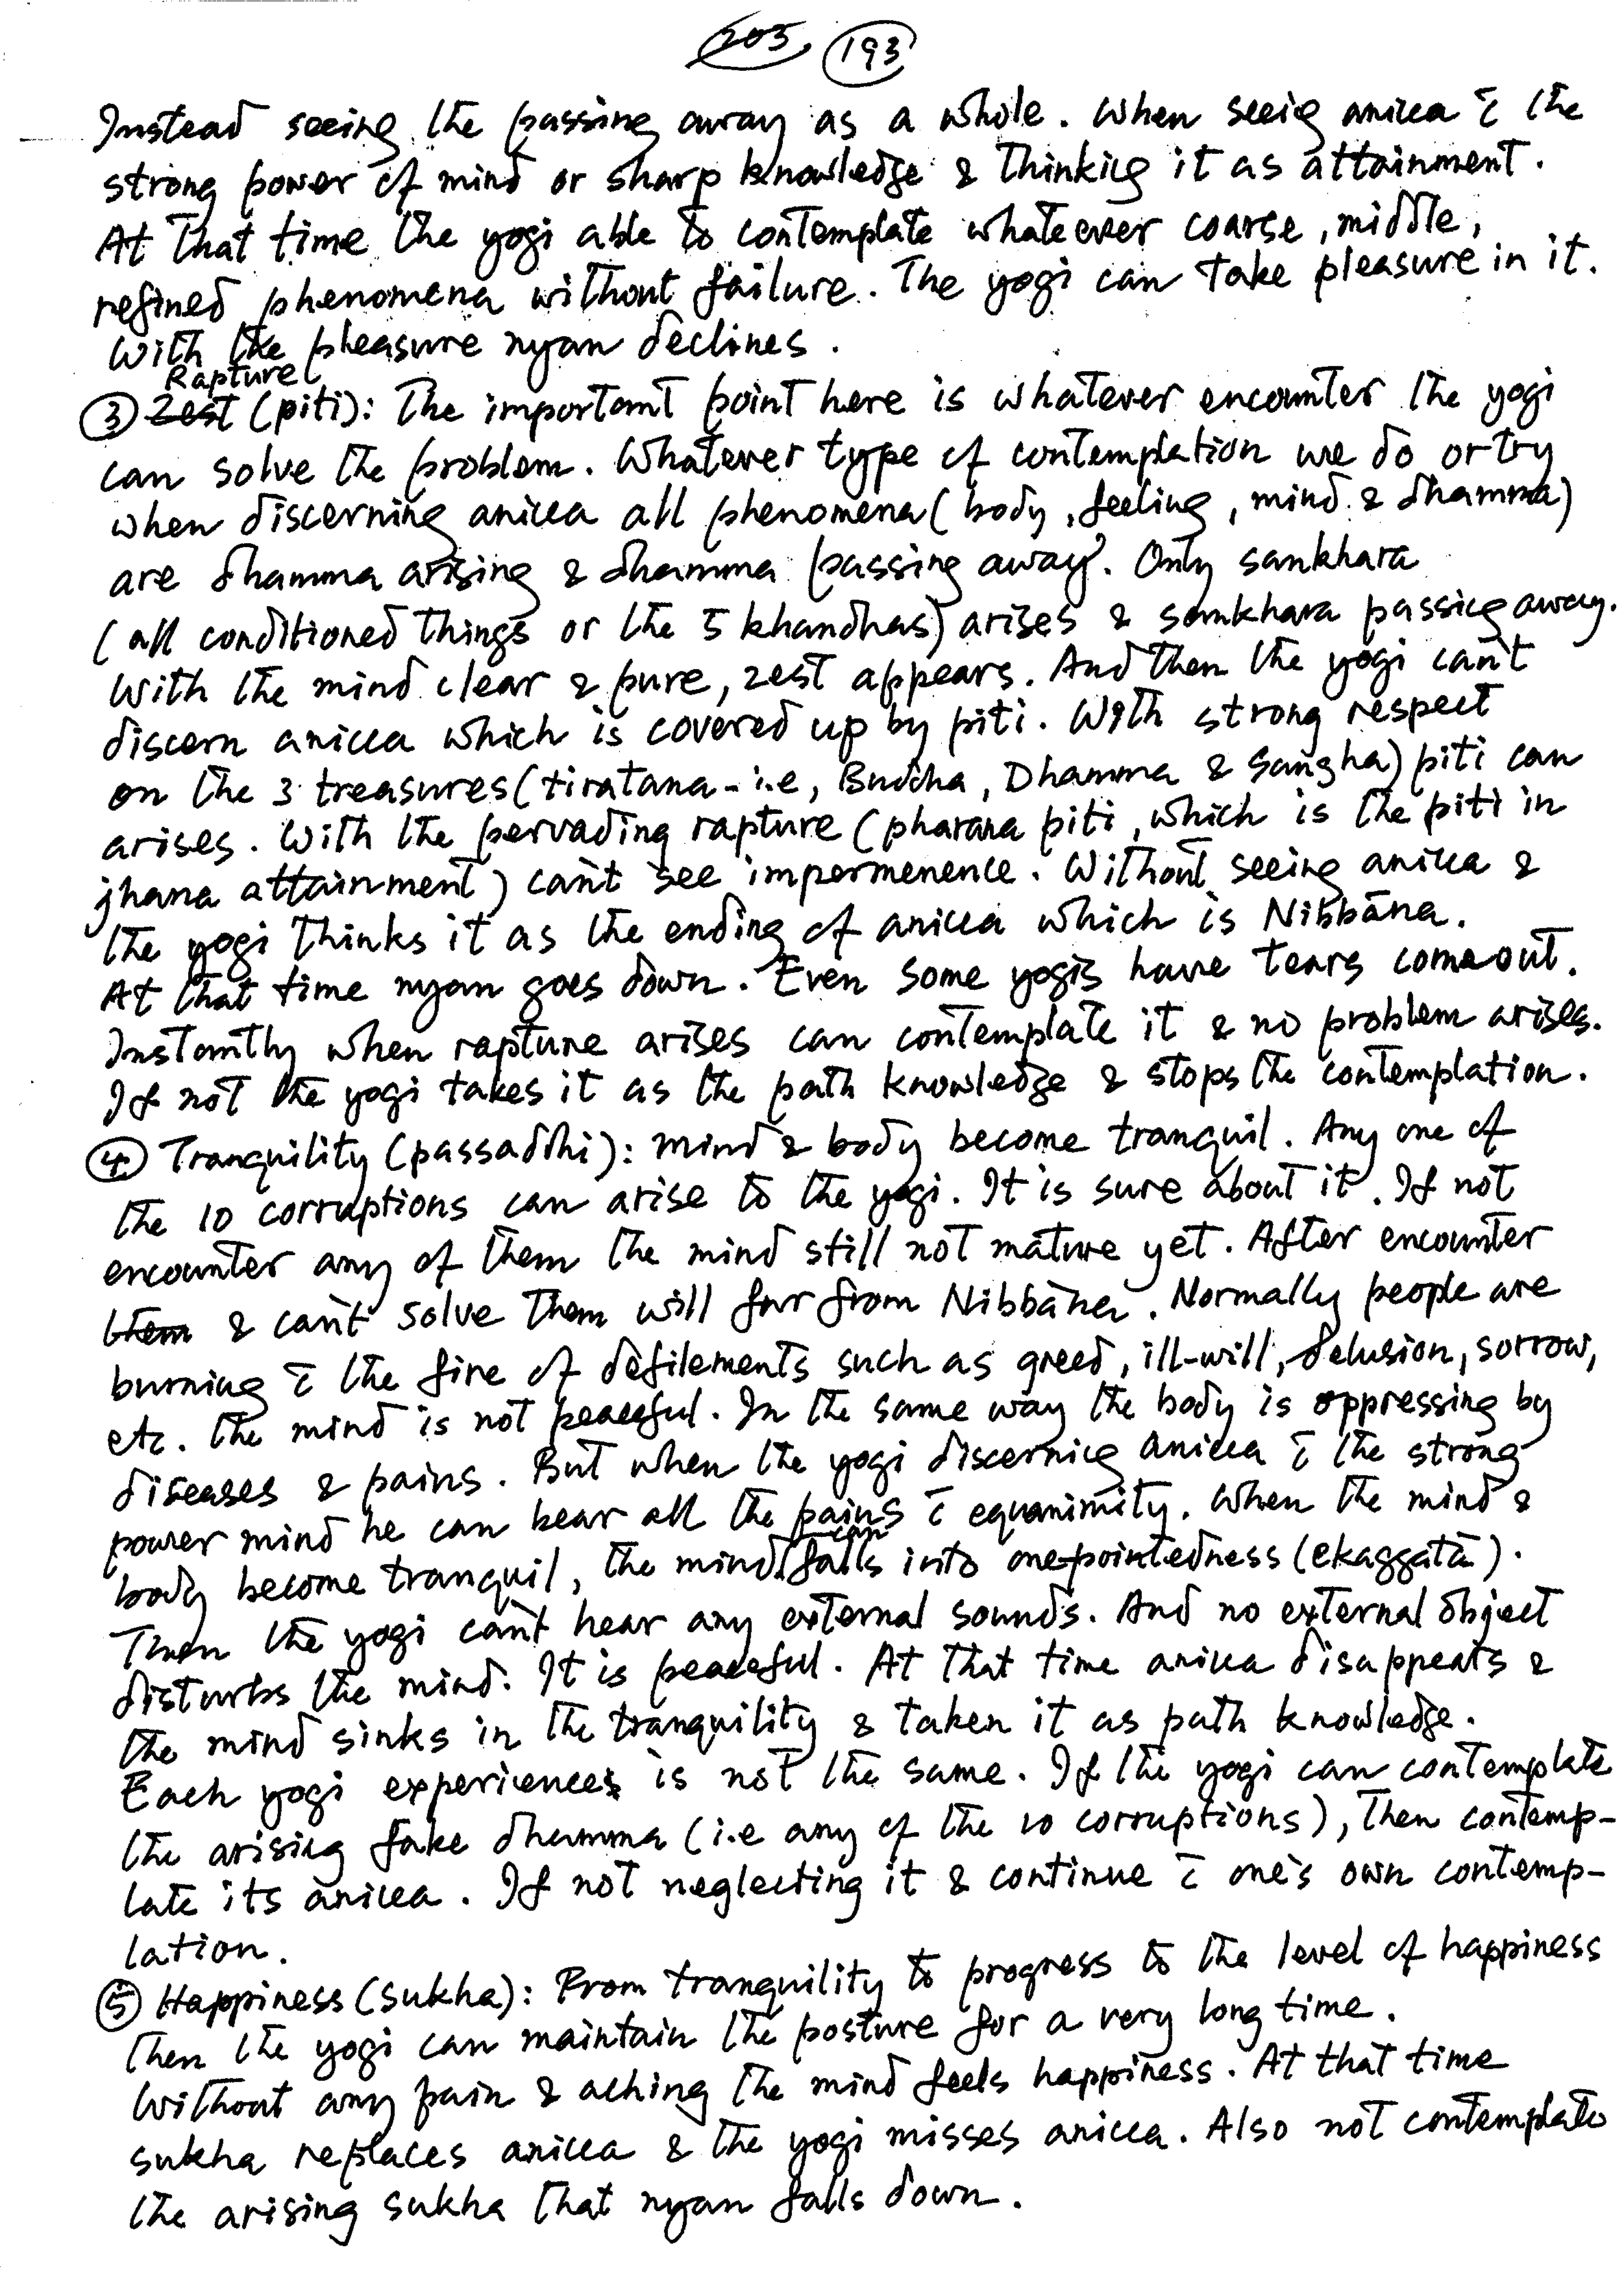 205 193
Instead seeing the passing away as a whole. When seeig anicca c̄ the
strong power of mind or sharp knowledge & thinkiŋ it as attainment.
At that time the yogi able to contemplate whateever coarse, middle,
refined phenomena without failure. The yogi can take pleasure in it.
With the pleasure nyan declines.
Rapture
③ Zest (piti): The important point here is whatever encounter the yogi
can solve the problem. Whatever type of contemplation we do or try
when discerning anicca all phenomena (body, feeling, mind & dhamma)
are dhamma arising & dhamma passing away. Only sankhara
(all conditioned things or the 5 khandhas) arises & sankhara passing away.
With the mind clear & pure, zest appears. And then the yogi can't
discern anicca which is covered up by piti. With strong respect
on the 3 treasures (tiratana - i.e, Buddha, Dhamma & Sangha) piti can
arises. With the pervading rapture (pharana piti, which is the piti in
jhana attainment) can't see impermenence. Without seeing anicca &
the yogi thinks it as the ending of anicca which is Nibbāna.
At that time nyan goes down. Even some yogis have tears come out.
Instantly when rapture arises can contemplate it & no problem arises.
If not the yogi takes it as the path knowledge & stops the contemplation.
④ Tranquility (passaddhi): mind & body become tranquil. Any one of
the 10 corruptions can arise to the yogi. It is sure about it. If not
encounter any of them the mind still not mature yet. After encounter
them & can't solve them will far from Nibbāna. Normally people are
burning c̄ the fire of defilements such as greed, ill-will, delusion, sorrow,
etc. the mind is not peaceful. In the same way the body is oppressing by
diseases & pains. But when the yogi discerning anicca c̄ the strong
power mind he can bear all the pains c̄ equanimity. When the mind &
body become tranquil, the mind can falls into onepointedness (ekaggatā).
Then the yogi can't hear any external sounds. And no external object
disturbs the mind. It is peaceful. At that time anicca disappears &
the mind sinks in the tranquility & taken it as path knowledge.
Each yogi experiences is not the same. If the yogi can contemplate
the arising fake dhamma (i.e any of the 10 corruptions), then contemp-
late its anicca. If not neglecting it & continue c̄ one's own contemp-
lation.
⑤ Happiness (sukha): From tranquility to progress to the level of happiness
then the yogi can maintain the posture for a very long time.
Without any pain & aching the mind feels happiness. At that time
sukha replaces anicca & the yogi misses anicca. Also not contemplate
the arising sukha that nyan falls down.